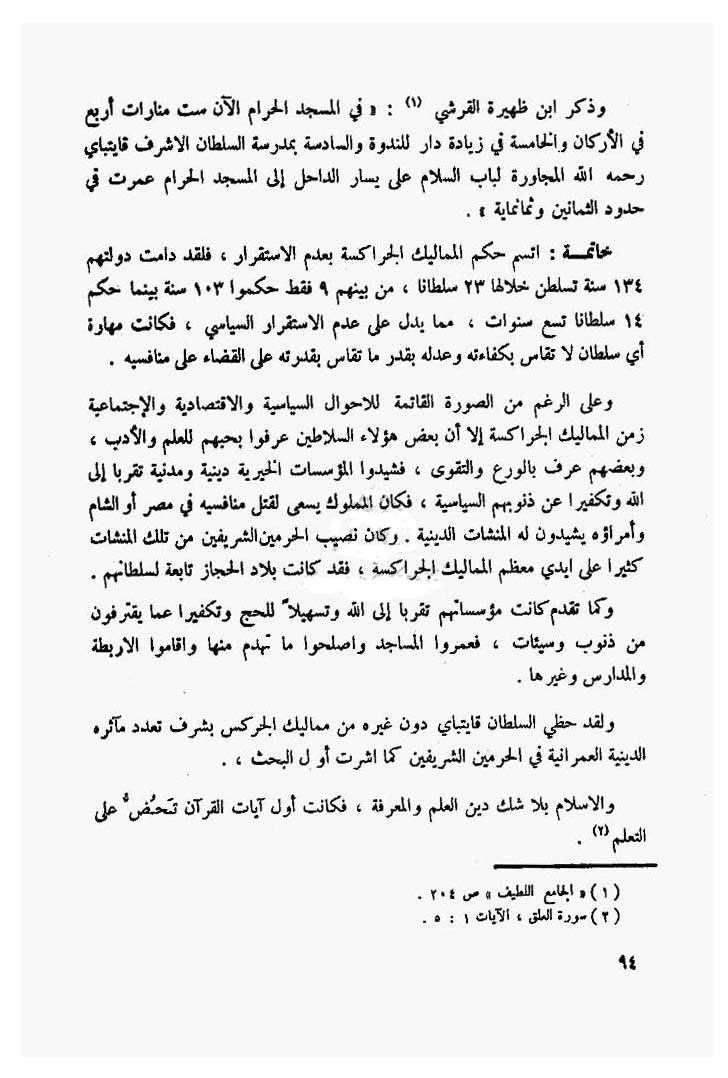 وذكر ابن ظهيرة القرشي (١) : « في المسجد الحرام الآن ست منارات أربع
في الأركان والخامسة في زيادة دار للندوة والسادسة بمدرسة السلطان الاشرف قايتباي
رحمه الله المجاورة لباب السلام على يسار الداخل إلى المسجد الحرام عمرت في
حدود الثمانين وثمانماية » .
خاتمـــة : اتسم حكم المماليك الجراكسة بعدم الاستقرار ، فلقد دامت دولتهم
١٣٤ سنة تسلطن خلالها ٢٣ سلطانا ، من بينهم ٩ فقط حكموا ١٠٣ سنة بينما حكم
١٤ سلطانا تسع سنوات ، مما يدل على عدم الاستقرار السياسي ، فكانت مهارة
أي سلطان لا تقاس بكفاءته وعدله بقدر ما تقاس بقدرته على القضاء على منافسيه .
وعلى الرغم من الصورة القائمة للاحوال السياسية والاقتصادية والإجتماعية
زمن المماليك الجراكسة إلا أن بعض هؤلاء السلاطين عرفوا بحبهم للعلم والأدب ،
وبعضهم عرف بالورع والتقوى ، فشيدوا المؤسسات الخيرية دينية ومدنية تقربا إلى
الله وتكفيرا عن ذنوبهم السياسية ، فكان المملوك يسعى لقتل منافسيه في مصر أو الشام
وأمراؤه يشيدون له المنشات الدينية . وكان نصيب الحرمين الشريفين من تلك المنشات
كثيرا على ايدي معظم المماليك الجراكسة ، فقد كانت بلاد الحجاز تابعة لسلطانهم .
وكما تقدم كانت مؤسساتهم تقربا إلى الله وتسهيلاً للحج وتكفيرا عما يقترفون
من ذنوب وسيئات ، فعمروا المساجد واصلحوا ما تهدم منها واقاموا الاربطة
والمدارس وغيرها .
ولقد حظي السلطان قايتباي دون غيره من مماليك الجركس بشرف تعدد مآثره
الدينية العمرانية في الحرمين الشريفين كما اشرت أول البحث ، .
والاسلام بلا شك دين العلم والمعرفة ، فكانت أول آيات القرآن تَحُضُّ على
التعلم (٢) .
(١) « الجامع اللطيف » ص ٢٠٤ .
(٢) سورة العلق ، الآيات ١ : ٥ .
٩٤